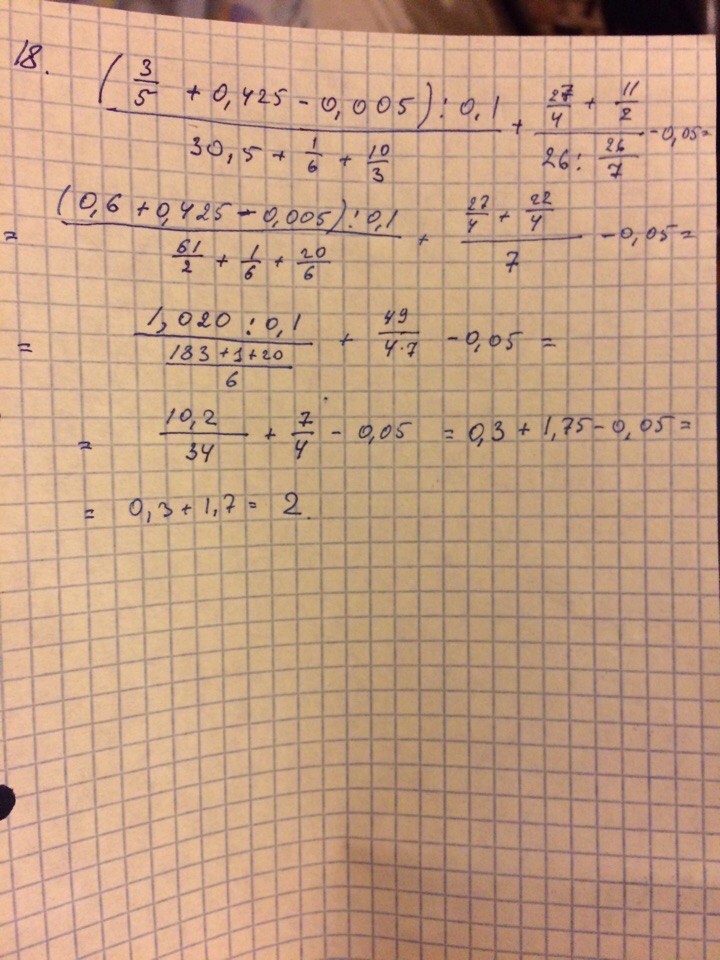 18. (3/5 + 0,425 - 0,005) : 0,1 / 30,5 + 1/6 + 10/3 + 27/4 + 11/2 / 26 : 26/7 - 0,05 =
= (0,6 + 0,425 - 0,005) : 0,1 / 61/2 + 1/6 + 20/6 + 27/4 + 22/4 / 7 - 0,05 =
= 1,020 : 0,1 / 183 + 1 + 20 / 6 + 49 / 4·7 - 0,05 =
= 10,2 / 34 + 7/4 - 0,05 = 0,3 + 1,75 - 0,05 =
= 0,3 + 1,7 = 2.